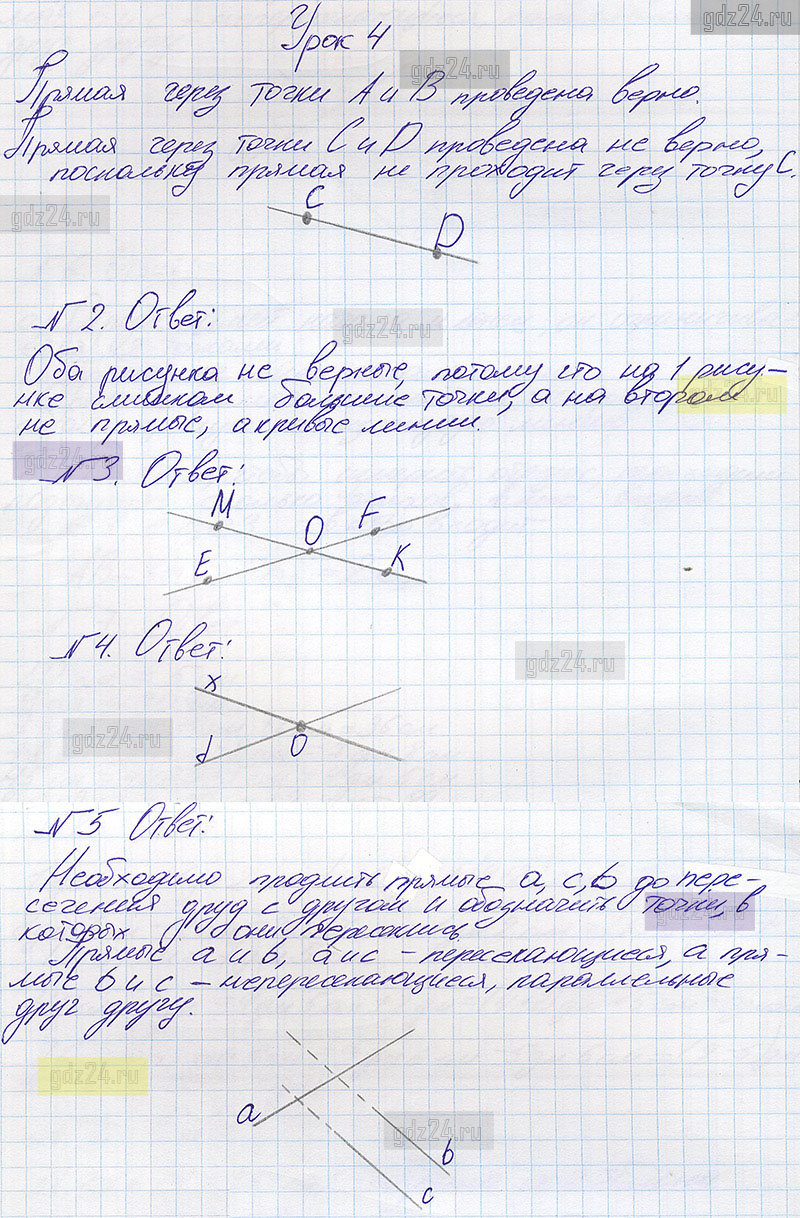 gdz24.ru
Урок 4
gdz24.ru
Прямая через точки А и В проведена верно.
Прямая через точки С и D проведена не верно,
поскольку прямая не проходит через точку С.
gdz24.ru
C
D
№ 2. Ответ:
gdz24.ru
Оба рисунка не верные, потому что на 1 рису-
нке слишком большие точки, а на втором
gdz24.ru
не прямые, а кривые линии.
gdz24.ru
№ 3. Ответ:
M
O
F
E
K
№ 4. Ответ:
gdz24.ru
x
d
O
gdz24.ru
№ 5 Ответ:
Необходимо продлить прямые a, c, b до пере-
сечения друг с другом и обозначить точки, в
которых они пересеклись.
gdz24.ru
Прямые a и b, a и c – пересекающиеся, а пря-
мые b и c – непересекающиеся, параллельные
друг другу.
gdz24.ru
a
gdz24.ru
b
c